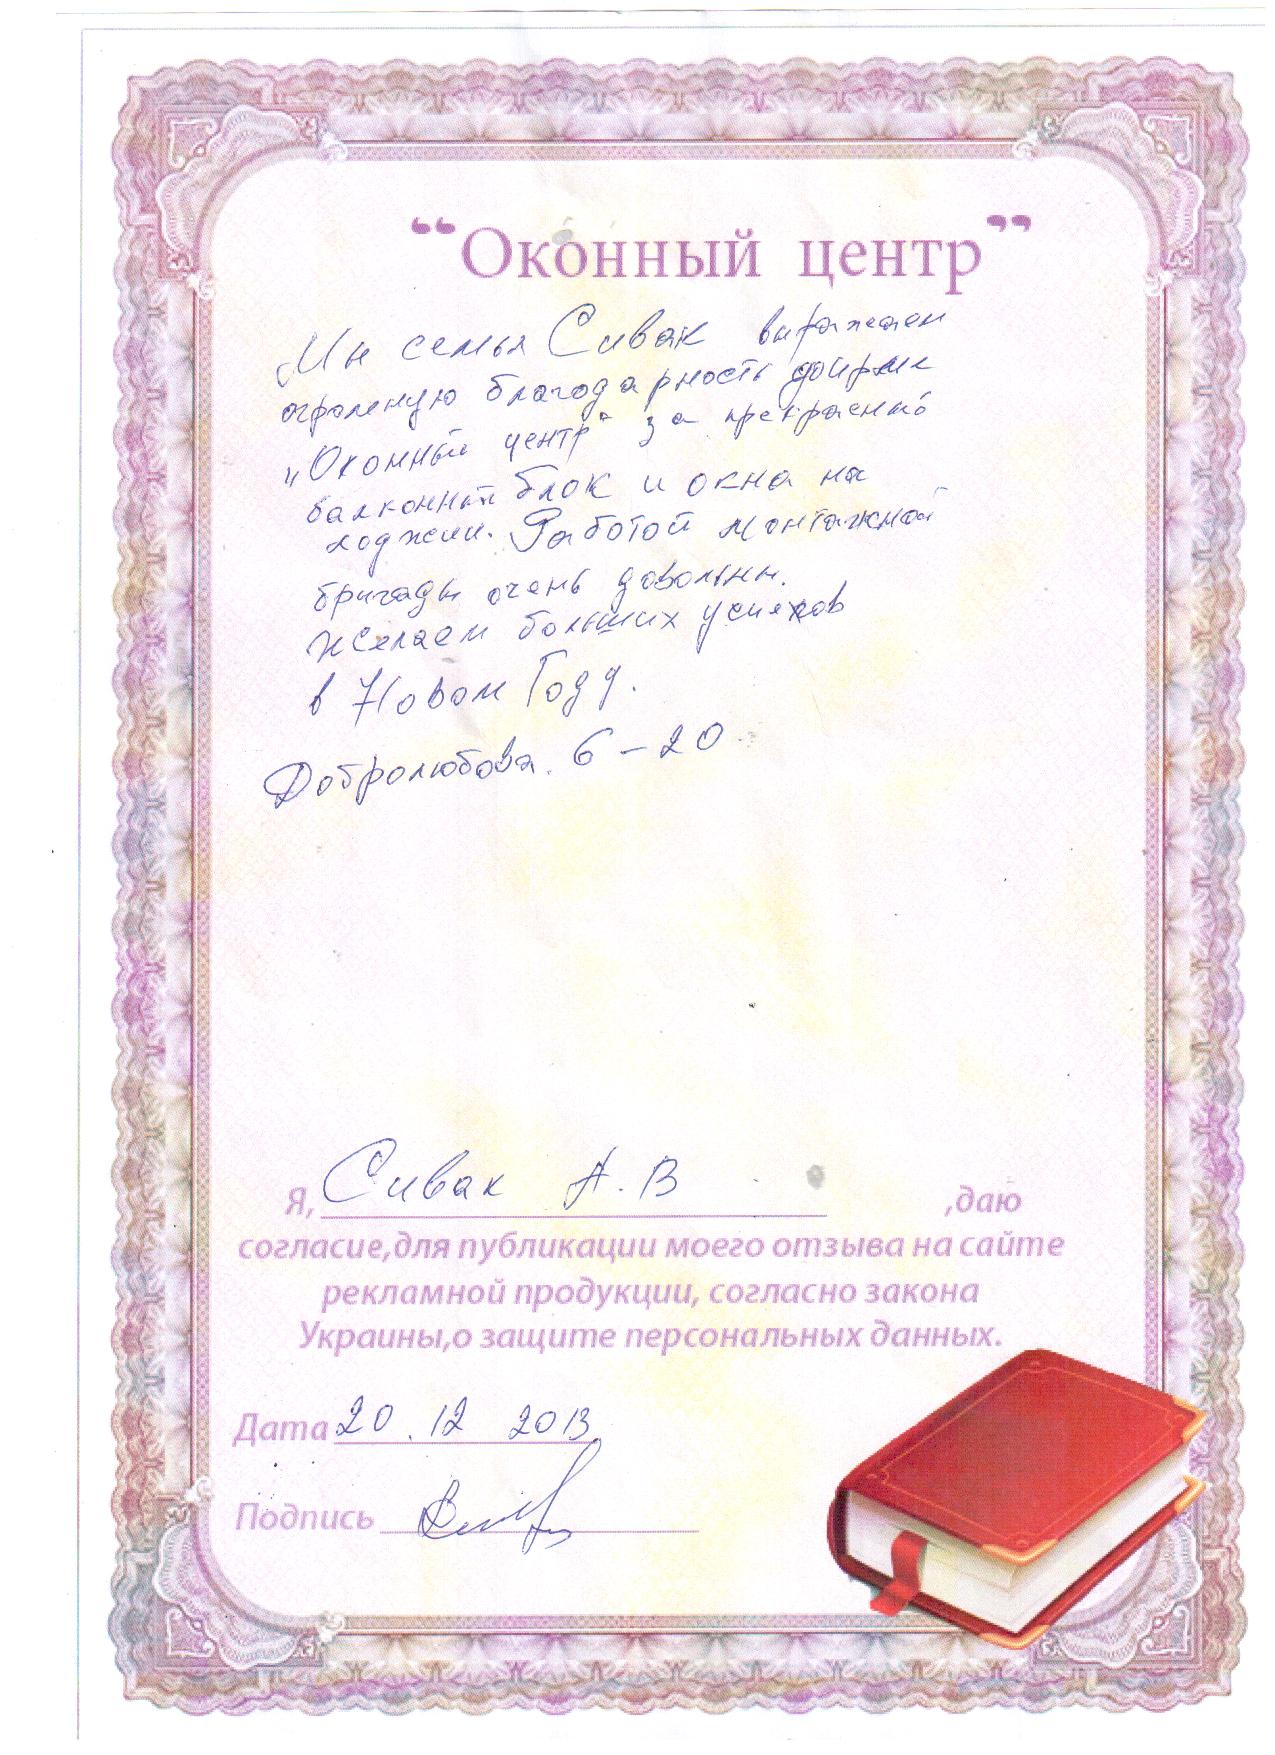 “Оконный центр”
Мы семья Сивак выражаем
огромную благодарность фирме
„Оконный центр“ за прекрасный
балконный блок и окна на
лоджии. Работой монтажной
бригады очень довольны.
Желаем больших успехов
в Новом Году.
Добролюбова. 6-20
Я, Сивак А.В ,даю
согласие,для публикации моего отзыва на сайте
рекламной продукции, согласно закона
Украины,о защите персональных данных.
Дата 20.12 2013
Подпись